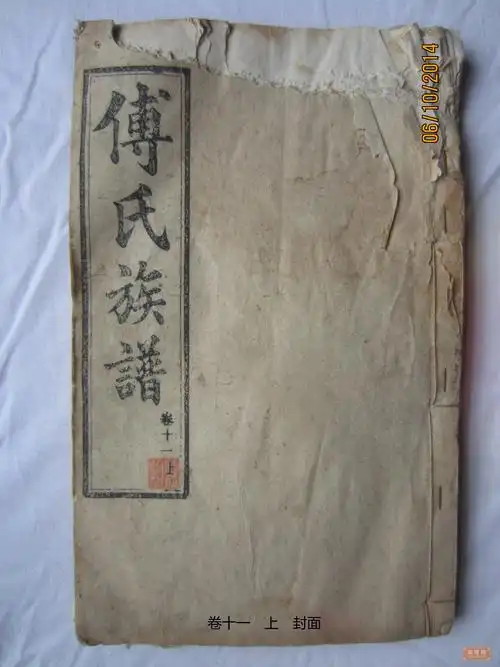 傅氏族譜
卷十一上
06/10/2014
卷十一 上 封面